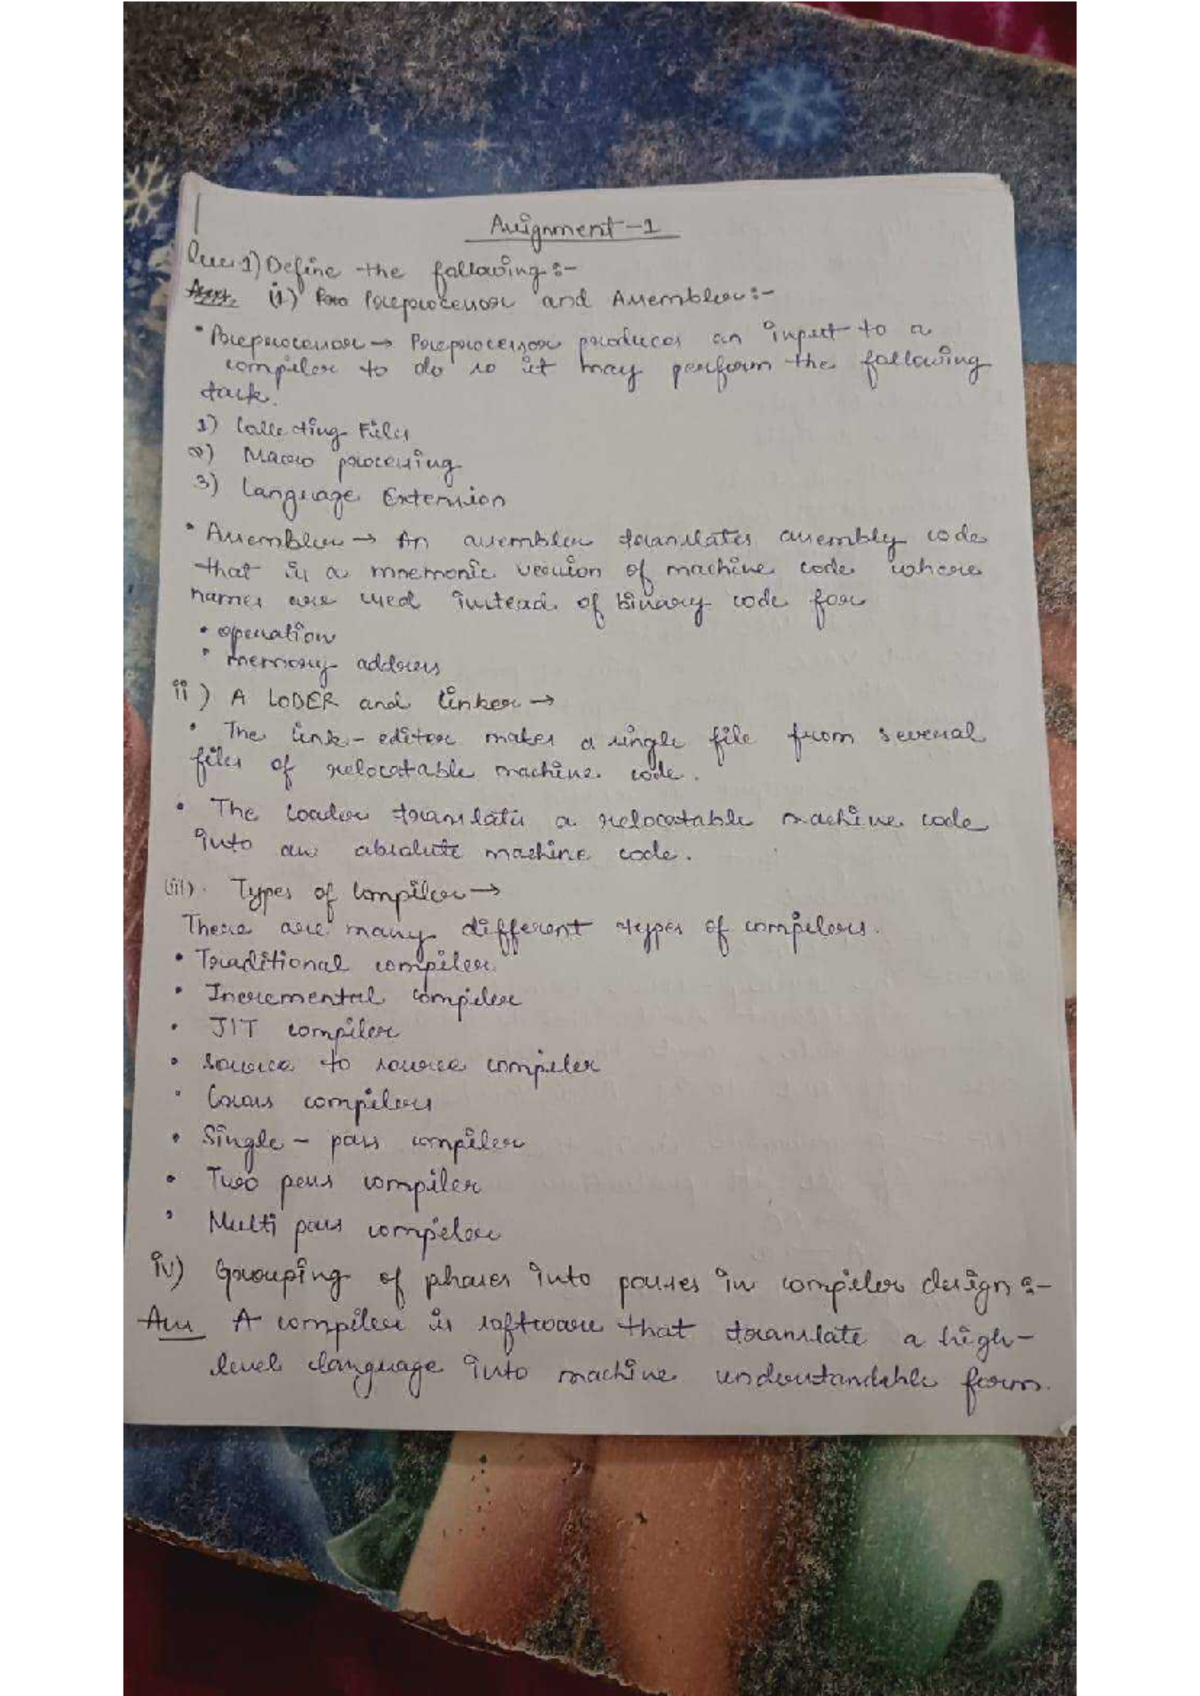 Assignment-1
Ques 1) Define the following :-
(i) Preprocessor and Assembler :-
• Preprocessor → Preprocessor produces an input to a
compiler to do so it may perform the following
task.
1) Collecting Files
2) Macro processing
3) Language Extension
• Assembler → An assembler translates assembly code
that is a mnemonic version of machine code where
names are used instead of binary code for
• operation
• memory address
ii) A LODER and linker →
• The link-editor makes a single file from several
files of relocatable machine code.
• The loader translate a relocatable machine code
into an absolute machine code.
(iii). Types of compiler →
There are many different types of compilers.
• Traditional compiler
• Incremental compiler
• JIT compiler
• source to source compiler
• Cross compilers
• Single - pass compiler
• Two pass compiler
• Multi pass compiler
iv) Grouping of phases into passes in compiler design :-
Ans A compiler is software that translate a high-
level language into machine understandable form.